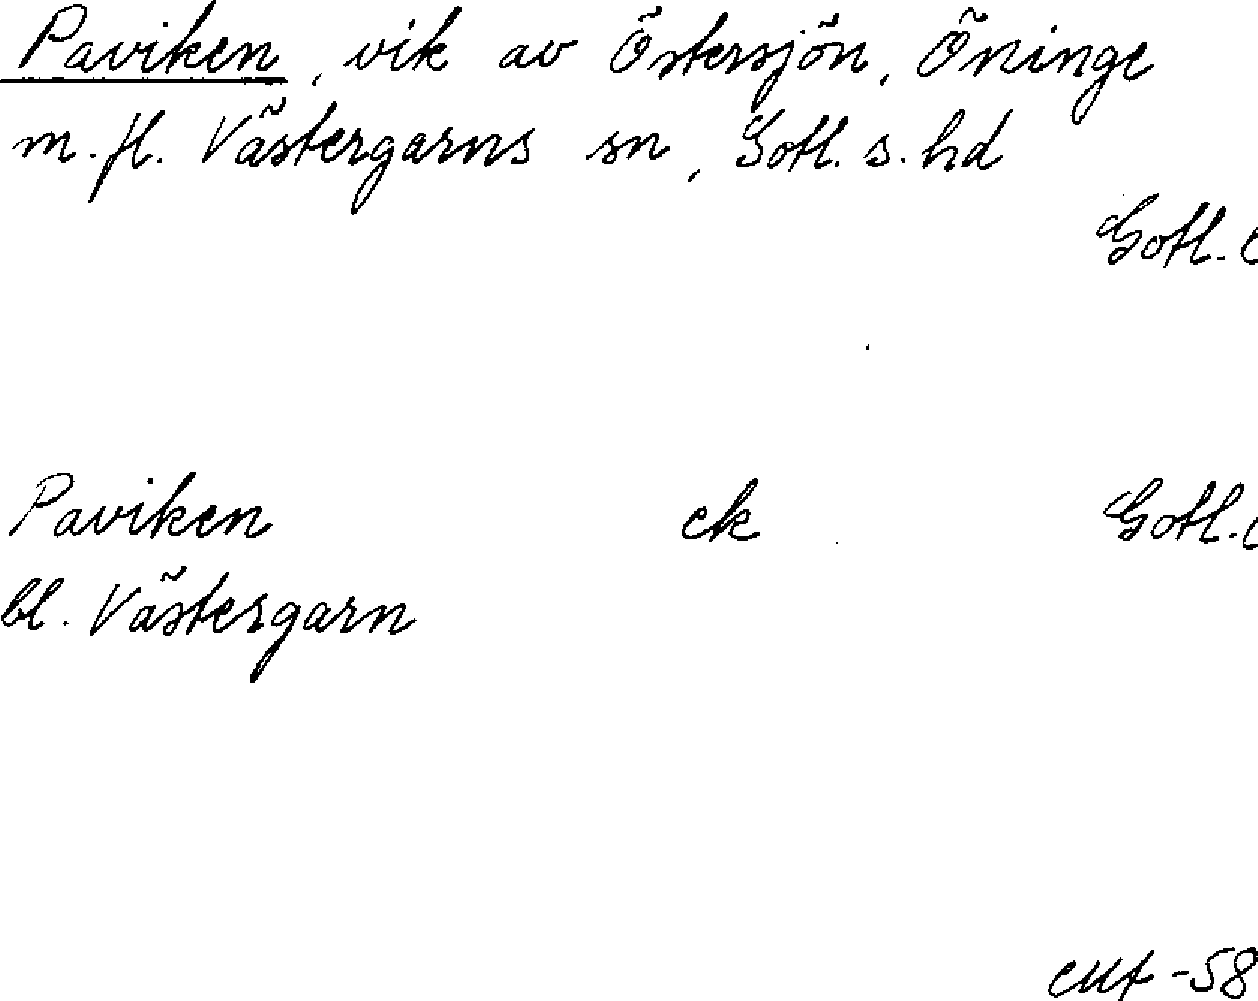 Paviken, vik av Östersjön, Öninge
m.fl. Västergarns sn, Gotl. s. hd
Gotl.
Paviken ek Gotl.
bl. Västergarn
-58